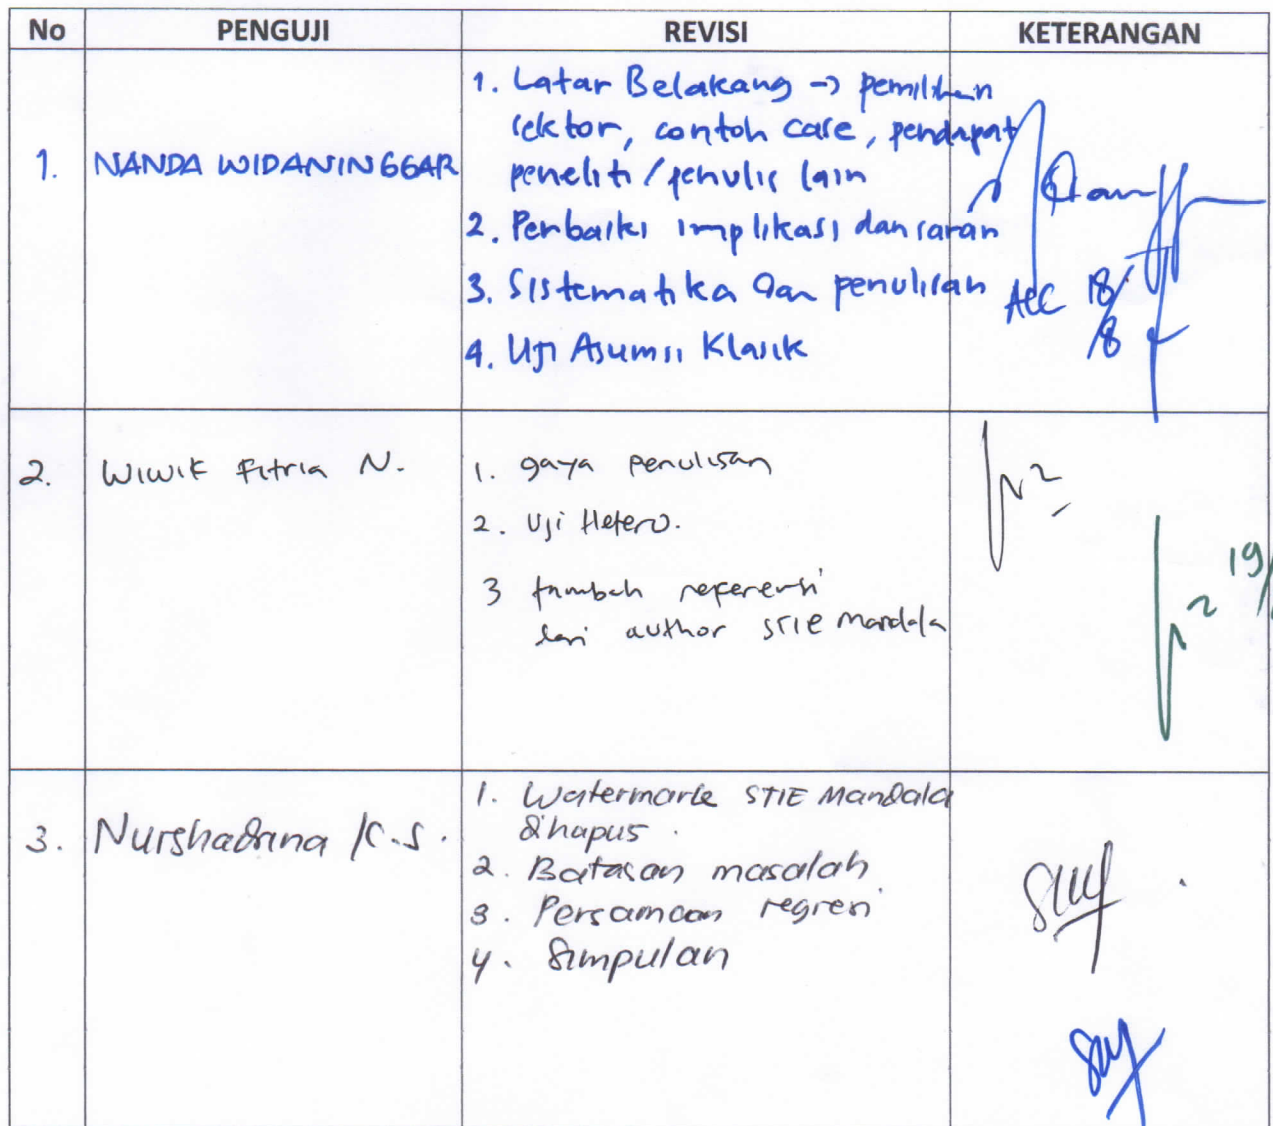 No PENGUJI REVISI KETERANGAN
1. NANDA WIDANINGGAR
1. Latar Belakang → pemilihan
sektor, contoh case, pendapat
peneliti / penulis lain
2. Perbaiki implikasi dan saran
3. Sistematika dan penulisan
4. Uji Asumsi Klasik
Acc 18/8
2. Wiwik Fitria N.
1. gaya penulisan
2. Uji Hetero.
3 tambah referensi
dari author STIE Mandala
19/
3. Nurshadrina K.S.
1. Watermark STIE Mandala
dihapus.
2. Batasan masalah
3. Persamaan regresi
4. Simpulan